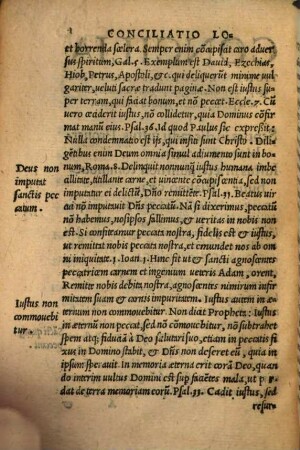 CONCILIATIO LO=
et horrenda scelera. Semper enim cōcupiscit caro aduer
sus spiritum, Gal. 5. Exemplum est Dauid, Ezechias,
Hiob, Petrus, Apostoli, & c. qui deliquerūt minime vul
gariter, veluti sacræ tradunt paginæ. Non est iustus su=
per terram, qui faciat bonum, et nō peccet. Eccle. 7. Cū
vero ceciderit iustus, nō collidetur, quia Dominus cōfir
mat manū eius. Psal. 36. Id quod Paulus sic expressit:
Nulla condemnatio est ijs, qui insiti sunt Christo. Dili
gētibus enim Deum omnia simul adiumento sunt in bo=
num, Roma. 8. Delinquit nonnunq̃ iustus humana imbe
Deus non
imputat
sanctis pec
catum.
cillitate, titillante carne, et vincente cōcupiscentia, sed non
imputatur ei delictū, Dn̄o remittēte. Psal. 31. Beatus vir
cui nō imputauit Dn̄s peccatū. Nā si dixerimus, peccatū
nō habemus, nosipsos fallimus, & veritas in nobis non
est. Si confiteamur peccata nostra, fidelis est & iustus,
ut remittat nobis peccata nostra, et emundet nos ab om
ni iniquitate. 1. Ioan. 1. Hinc fit ut & sancti agnoscētes
peccatricem carnem et ingenium veteris Adam, orent,
Remitte nobis debita nostra, agnoscētes nimirum infir
mitatem suam & carnis impuritatem. Iustus autem in
Iustus non
commouebi
tur.
æternum non commouebitur. Non ait Propheta: Iustus
in æternū non peccat, sed nō cōmouebitur, nō subtrahet
spem atq; fiduciā à Deo salutari suo, etiam in peccatis si
xus in Domino stabit, & Dn̄s non deseret eū, quia in
ipsum sperauit. In memoria æterna erit corā Deo, quan
do interim vultus Domini est sup faciētes mala, ut p̄r
dat de terra memoriam eorū. Psal. 33. Cadit iustus, sed
resur=